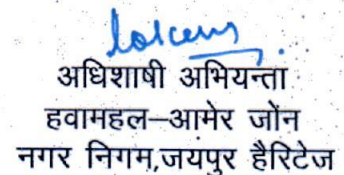 अधिशाषी अभियन्ता
हवामहल–आमेर जोंन
नगर निगम,जयपुर हैरिटेज